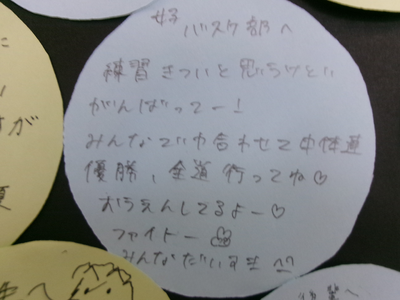 女子
バスケ部へ
練習きついと思うけどい
がんばってー!
みんなで力合わせて中体連
優勝、全道行ってね♡
おうえんしてるよー♡
ファイトー
みんなだいすき ^^